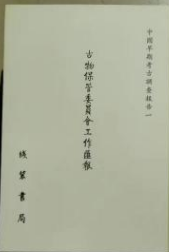 中國早期考古調查報告一
古物保管委員會工作彙報
线装書局